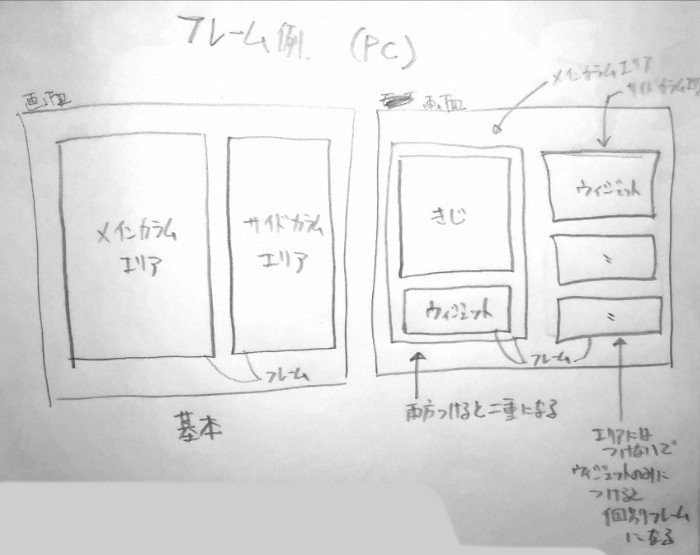 フレーム例. (PC)
画面
メインカラム
エリア
サイドカラム
エリア
フレーム
基本
画面
メインカラムエリア
サイドカラムエリ
きじ
ウィジェット
ウィジェット
〃
〃
フレーム
両方つけると二重になる
エリアには
つけないで
ウィジェットのみに
つけると
個別フレーム
になる